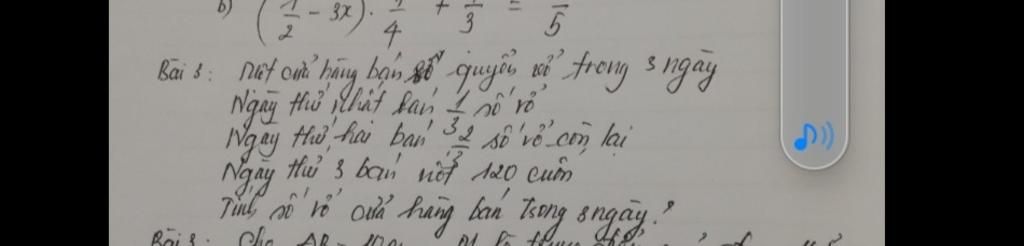 b) (1/2 - 3x) . 1/4 + 1/3 = /5
Bài 3: Một cửa hàng bán số quyển vở trong 3 ngày
Ngày thứ nhất bán 1/3 số vở
Ngày thứ hai bán 2/3 số vở còn lại
Ngày thứ 3 bán nốt 120 cuốn
Tính số vở cửa hàng bán trong 3 ngày?
Bài 3: Cho AB =